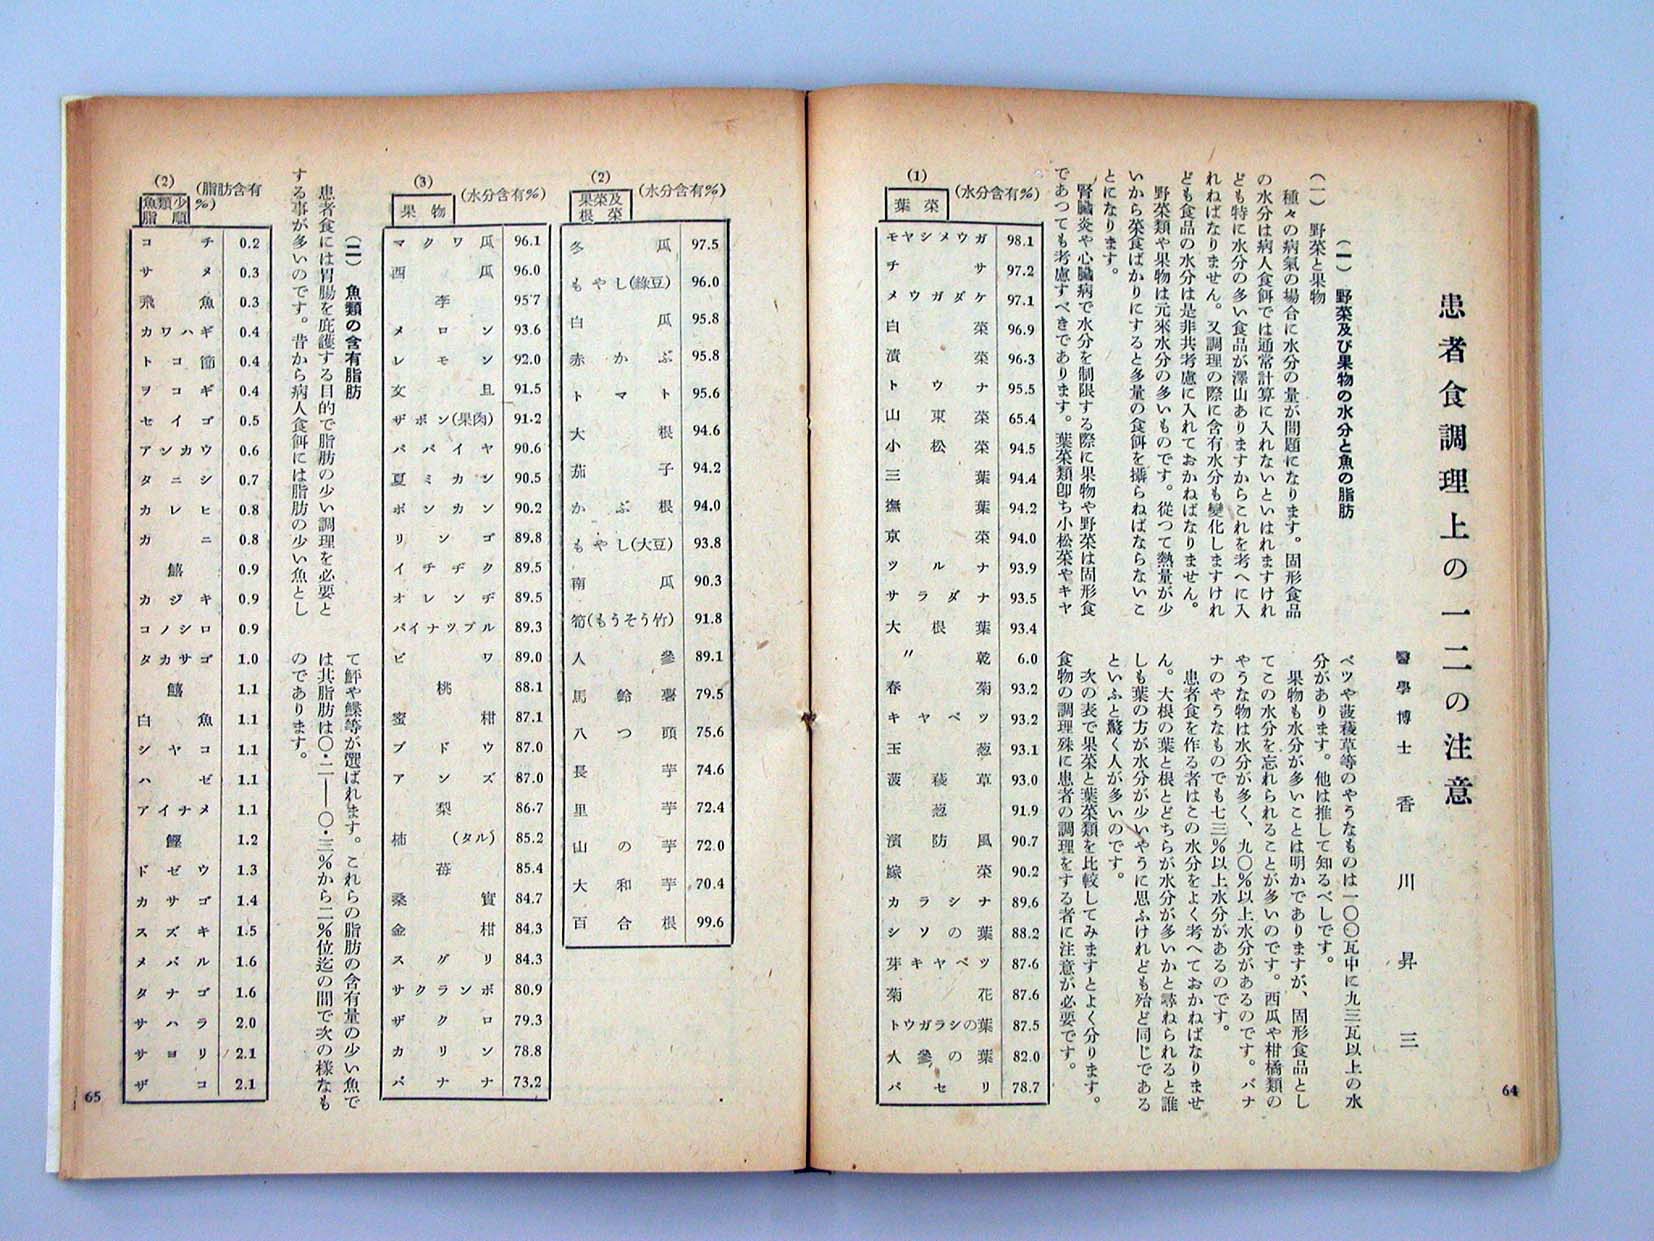 患者食調理上の一二の注意
醫學博士 香川昇三
(一) 野菜及び果物の水分と魚の脂肪
(一) 野菜と果物
種々の病氣の場合に水分の量が問題になります。固形食品
の水分は病人食餌では通常計算に入れないといはれますけれ
ども特に水分の多い食品が澤山ありますからこれを考へに入
れねばなりません。又調理の際に含有水分も變化しますけれ
ども食品の水分は是非共考慮に入れておかねばなりません。
野菜類や果物は元來水分の多いものです。從つて熱量が少
いから菜食ばかりにすると多量の食餌を攝らねばならないこ
とになります。
腎臓炎や心臓病で水分を制限する際に果物や野菜は固形食
であつても考慮すべきであります。葉菜類卽ち小松菜やキヤ
ベツや菠薐草等のやうなものは一〇〇瓦中に九三瓦以上の水
分があります。他は推して知るべしです。
果物も水分が多いことは明かでありますが、固形食品とし
てこの水分を忘れられることが多いのです。西瓜や柑橘類の
やうな物は水分が多く、九〇%以上水分があるのです。バナ
ナのやうなものでも七三%以上水分があるのです。
患者食を作る者はこの水分をよく考へておかねばなりませ
ん。大根の葉と根とどちらが水分が多いかと尋ねられると誰
しも葉の方が水分が少いやうに思ふけれども殆ど同じである
といふと驚く人が多いのです。
次の表で果菜と葉菜類を比較してみますとよく分ります。
食物の調理殊に患者の調理をする者に注意が必要です。
(1) 葉菜 (水分含有%)
モヤシメウガ 98.1
チサ 97.2
メウガダケ 97.1
白菜 96.9
漬菜 96.3
トウナ 95.5
山東菜 65.4
小松菜 94.5
三葉 94.4
撫葉 94.2
京菜 94.0
ツルナ 93.9
サラダナ 93.5
大根葉 93.4
〃乾 6.0
春菊 93.2
キヤベツ 93.2
玉葱 93.1
菠薐草 93.0
葱 91.9
濱防風 90.7
菜 90.2
カラシナ 89.6
シソの葉 88.2
芽キヤベツ 87.6
菊花 87.6
トウガラシの葉 87.5
人參の葉 82.0
パセリ 78.7
64
(2) 果菜及根菜 (水分含有%)
冬瓜 97.5
もやし(綠豆) 96.0
白瓜 95.8
赤かぶ 95.8
トマト 95.6
大根 94.6
茄子 94.2
かぶ根 94.0
もやし(大豆) 93.8
南瓜 90.3
筍(もうそう竹) 91.8
人參 89.1
馬鈴薯 79.5
八つ頭 75.6
長芋 74.6
里芋 72.4
山の芋 72.0
大和芋 70.4
百合根 99.6
(3) 果物 (水分含有%)
マクワ瓜 96.1
西瓜 96.0
李 95.7
メロン 93.6
レモン 92.0
文旦 91.5
ザボン(果肉) 91.2
パパイヤ 90.6
夏ミカン 90.5
ポンカン 90.2
リンゴ 89.8
イチヂク 89.5
オレンヂ 89.5
パイナツプル 89.3
ビワ 89.0
桃 88.1
蜜柑 87.1
ブドウ 87.0
アンズ 87.0
梨 86.7
柿(タル) 85.2
苺 85.4
桑實 84.7
金柑 84.3
スグリ 84.3
サクランボ 80.9
ザクロ 79.3
カリン 78.8
バナナ 73.2
(二) 魚類の含有脂肪
患者食には胃腸を庇護する目的で脂肪の少い調理を必要と
する事が多いのです。昔から病人食餌には脂肪の少い魚とし
て鮃や鰈等が選ばれます。これらの脂肪の含有量の少い魚で
は共脂肪は〇・二―〇・三%から二%位迄の間で次の樣なも
のであります。
(2) 魚類少脂順 (脂肪含有%)
コチ 0.2
サメ 0.3
飛魚 0.3
カワハギ 0.4
トコ節 0.4
ヲコギ 0.4
セイゴ 0.5
アンカウ 0.6
タニシ 0.7
カレヒ 0.8
カニ 0.8
鱚 0.9
カジキ 0.9
コノシロ 0.9
タカサゴ 1.0
鱚 1.1
白魚 1.1
シヤコ 1.1
ハゼ 1.1
アイナメ 1.1
鰹 1.2
ドゼウ 1.3
カサゴ 1.4
スズキ 1.5
メバル 1.6
タナゴ 1.6
サハラ 2.0
サヨリ 2.1
ザコ 2.1
65